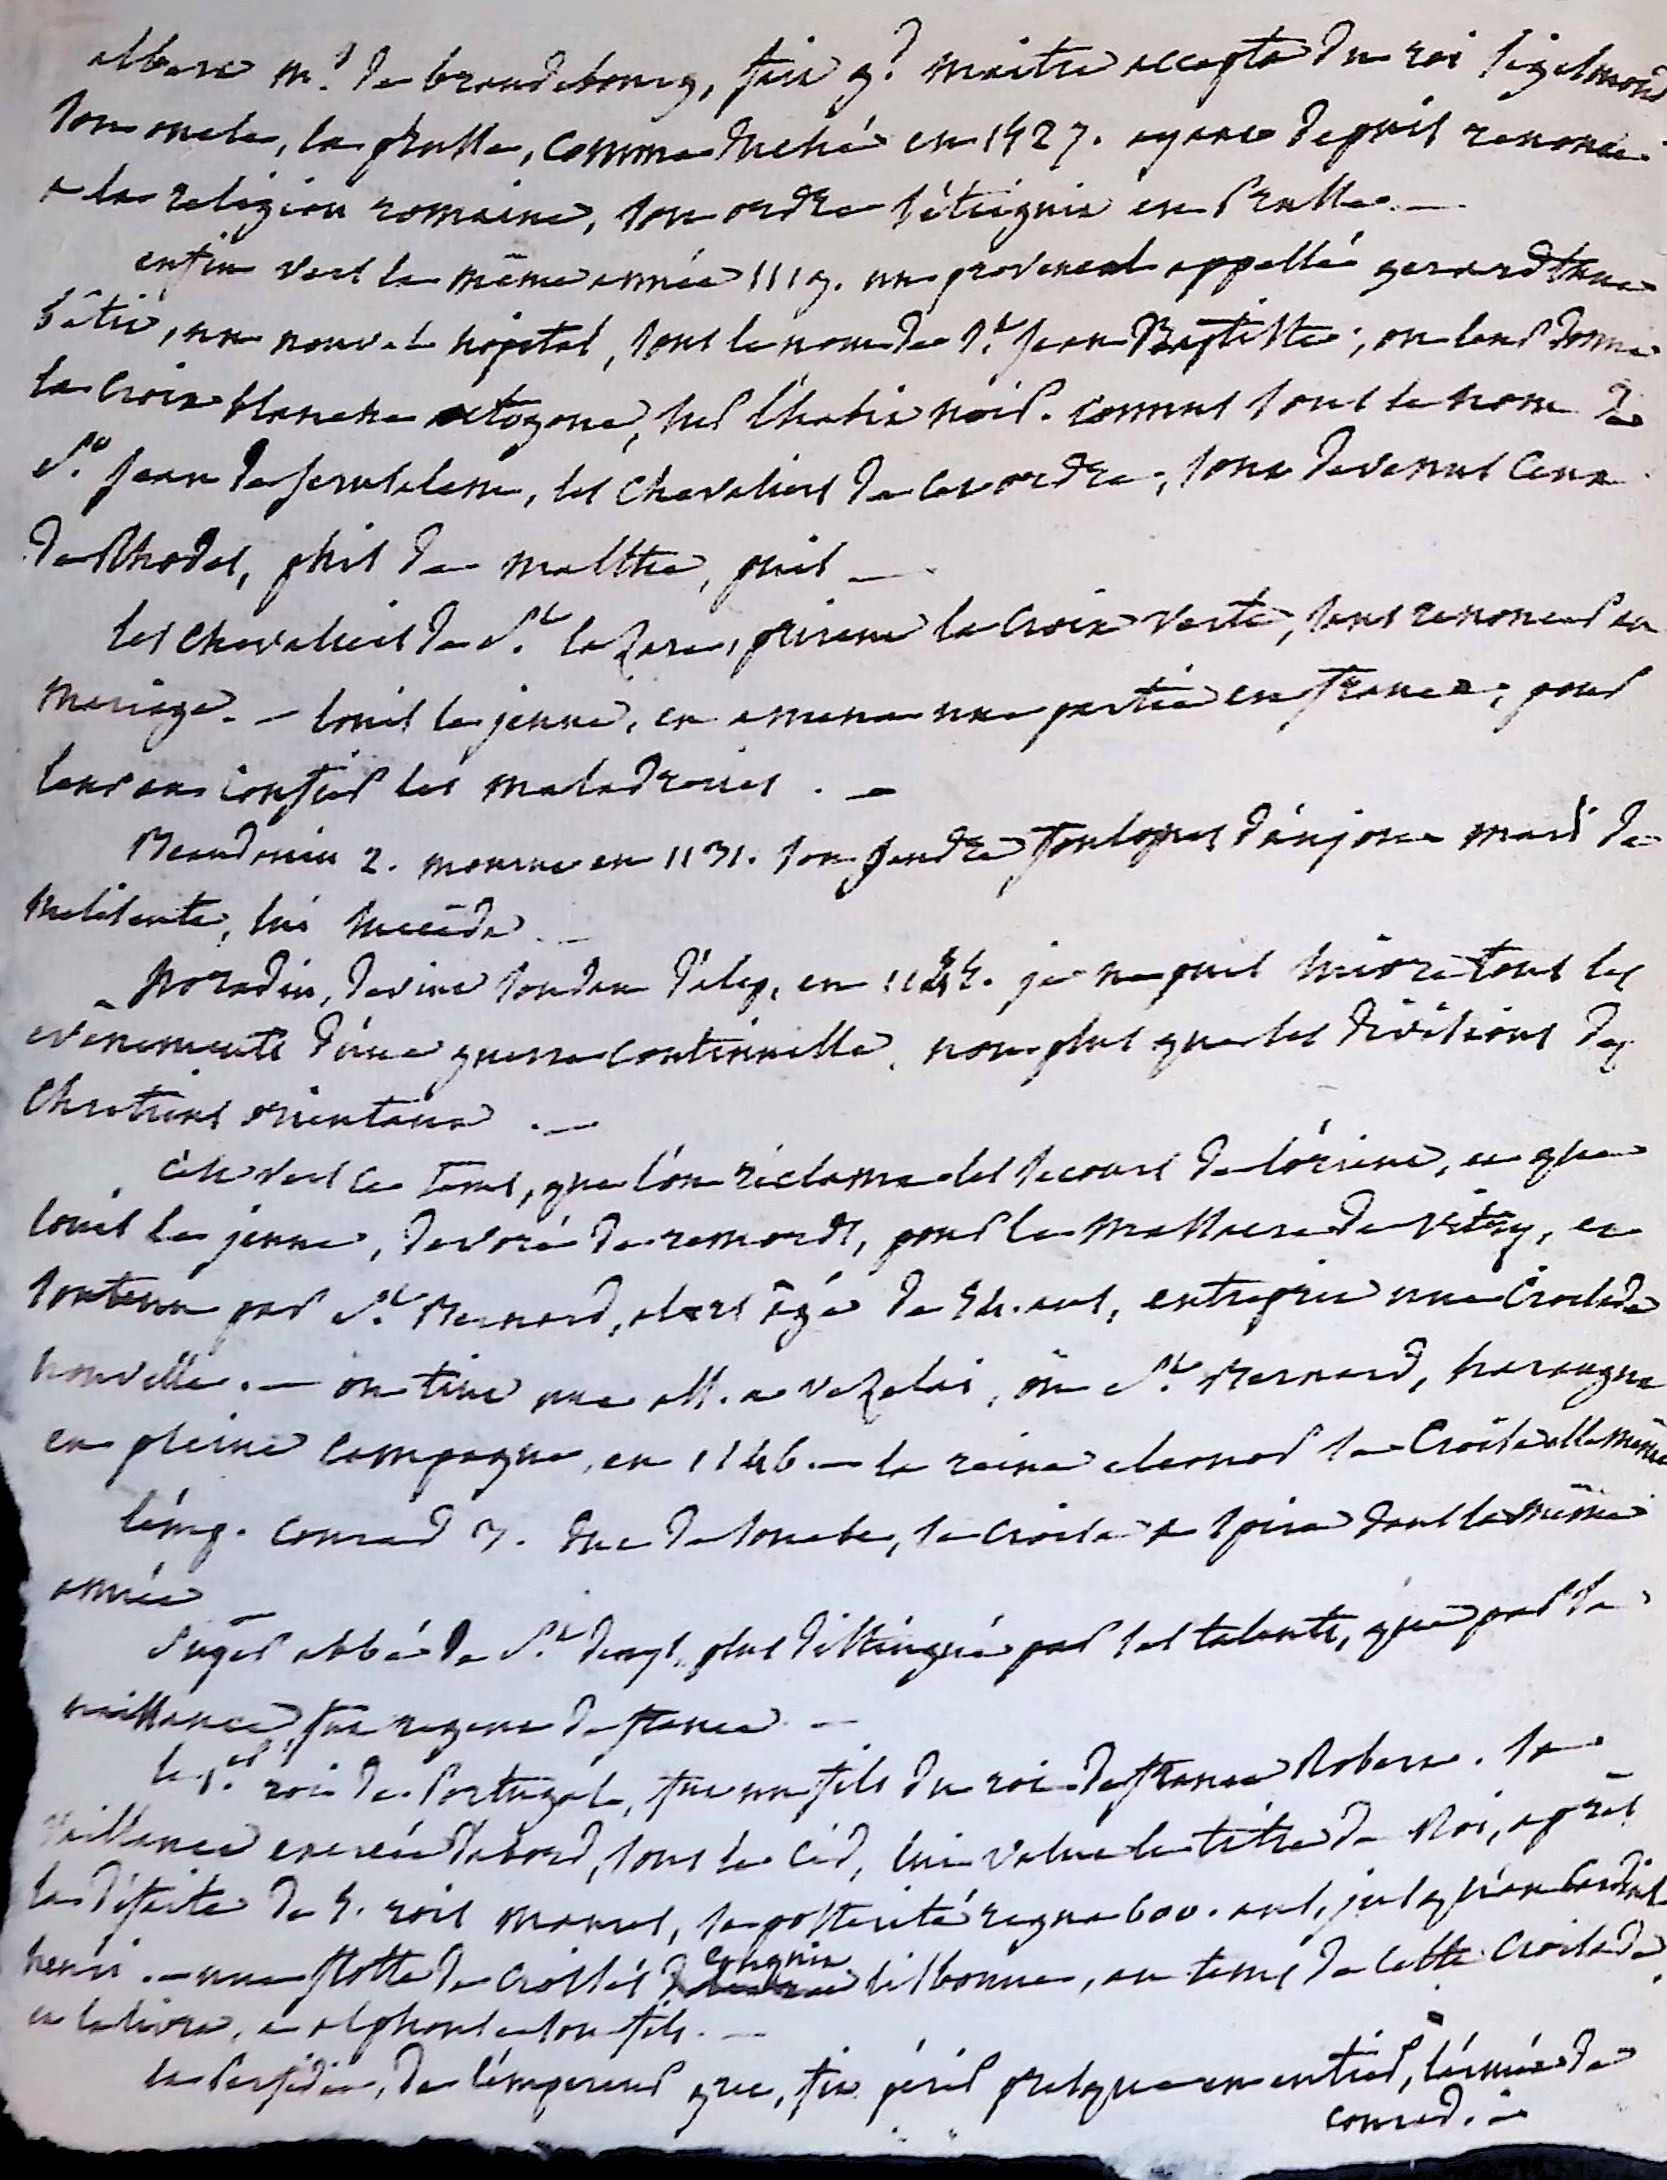 albert m.is de brandebourg, fait g.d maitre accepta du roi sigismond
son oncle, la prusse, comme duché en 1527. ayant depuis renoncé
a la religion romaine, son ordre s'éteignit en Prusse. —
enfin vers la même année 1119. un provencal appellé gerard
bâtit, un nouvel hôpital, sous le nom de St. jean Baptiste; on leur donna
la croix blanche octogone, sur l'habit noir. connus sous le nom de
St. jean de jerusalem, les chevaliers de cet ordre, sont devenus ceux
de Rhodes, puis de malthe, puis —
les chevaliers de St. lazare, prirent la croix verte, sans renoncer au
mariage. — louis le jeune, en amena une partie en france, pour
leur en confier les maladreries. —
Beaudouin 2. mourut en 1131. son gendre foulques d'anjou mari de
melisente, lui succéda. —
Noradin, devint soudan d'alep, en 1145. je ne puis suivre tous les
evênements d'une guerre continuelle, non plus que les divisions des
chretiens orientaux. —
c'est vers ce tems, que l'on réclama des secours de l'orient, et que
louis le jeune, devoré de remords, pour le massacre de vitry, et
soutenu par St. Bernard, alors âgé de 54. ans, entreprit une croisade
nouvelle. — on tint une ass. a vezelai, où St. Bernard, harangua
en pleine campagne, en 1146. — la reine eleonor se croisa elle même
l'emp. conrad 3. duc de souabe, se croisa a spire dans la même
année
Suger abbé de St. denys, plus distingué par ses talents, que par sa
naissance, fut regent de france. —
le 1.er roi de Portugal, fut un fils du roi de france Robert. sa
vaillance exercée d'abord, sous le cid, lui valut le titre de Roi, après
la défaite de 5. rois maures, sa posterité regna 600. ans, jusqu'au cardinal
henri. — une flotte de croisés conquit lisbonne, au tems de cette croisade
et la livra, a alphonse son fils. —
la perfidie, de l'empereur grec, fit périr presque en entier, l'armée de
conrad. —